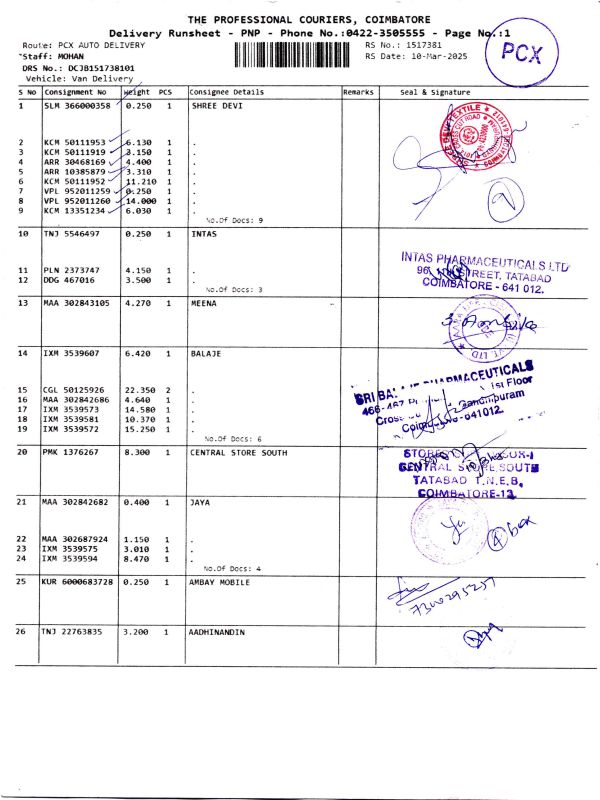 THE PROFESSIONAL COURIERS, COIMBATORE
Delivery Runsheet - PNP - Phone No.:0422-3505555 - Page No.:1
Route: PCX AUTO DELIVERY RS No.: 1517381
Staff: MOHAN RS Date: 10-Mar-2025
DRS No.: DCJB151738101
Vehicle: Van Delivery
PCX
S No Consignment No Weight PCS Consignee Details Remarks Seal & Signature
1 SLM 366000358 0.250 1 SHREE DEVI
2 KCM 50111953 6.130 1 .
3 KCM 50111919 3.150 1 .
4 ARR 30468169 4.400 1 .
5 ARR 10385879 3.310 1 .
6 KCM 50111952 11.210 1 .
7 VPL 952011259 0.250 1 .
8 VPL 952011260 14.000 1 .
9 KCM 13351234 6.030 1 .
No.Of Docs: 9
10 TNJ 5546497 0.250 1 INTAS
INTAS PHARMACEUTICALS LTD
STREET, TATABAD
COIMBATORE - 641 012.
11 PLN 2373747 4.150 1 .
12 DDG 467016 3.500 1 .
No.Of Docs: 3
13 MAA 302843105 4.270 1 MEENA
14 IXM 3539607 6.420 1 BALAJE
PHARMACEUTICALS
1st Floor
Gandhipuram
641012
15 CGL 50125926 22.350 2 .
16 MAA 302842686 4.640 1 .
17 IXM 3539573 14.580 1 .
18 IXM 3539581 10.370 1 .
19 IXM 3539572 15.250 1 .
No.Of Docs: 6
20 PMK 1376267 8.300 1 CENTRAL STORE SOUTH
CENTRAL STORE, SOUTH
TATABAD T.N.E.B,
COIMBATORE-12
21 MAA 302842682 0.400 1 JAYA
22 MAA 302687924 1.150 1 .
23 IXM 3539575 3.010 1 .
24 IXM 3539594 8.470 1 .
No.Of Docs: 4
4 box
25 KUR 6000683728 0.250 1 AMBAY MOBILE
26 TNJ 22763835 3.200 1 AADHINANDIN